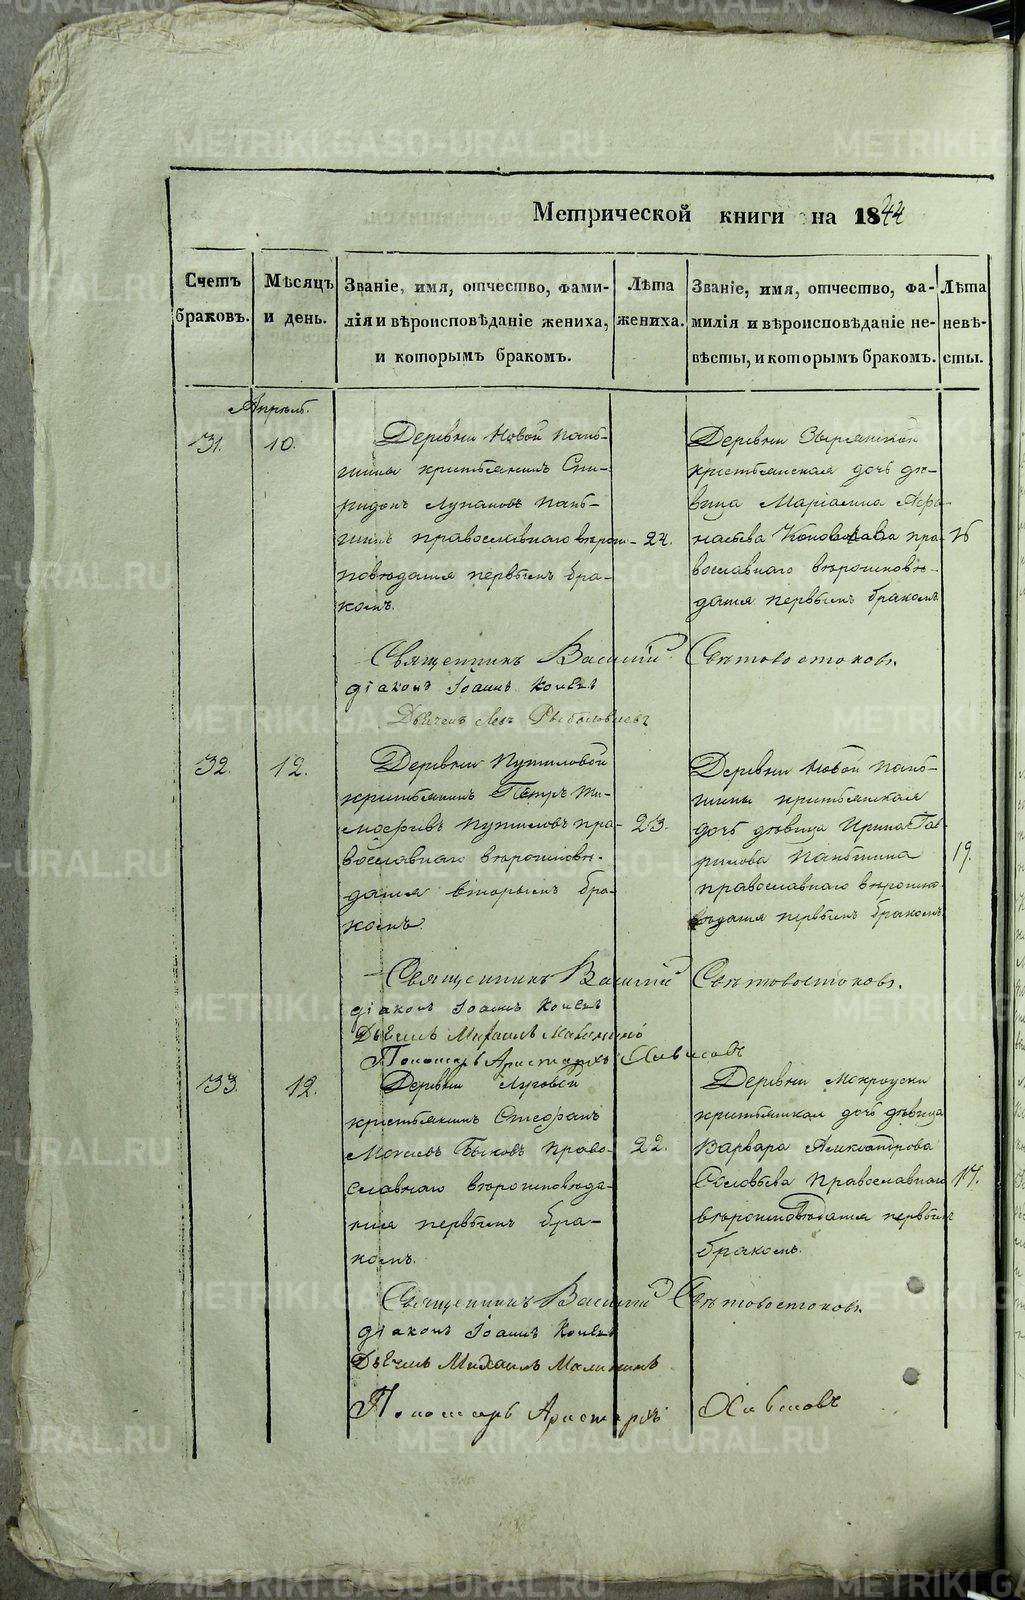 Метрической книги на 1844
Счетъ браковъ.
Мѣсяцъ и день.
Званіе, имя, отчество, фами-
лія и вѣроисповѣданіе жениха,
и которымъ бракомъ.
Лѣта
жениха.
Званіе, имя, отчество, фа-
милія и вѣроисповѣданіе не-
вѣсты, и которымъ бракомъ.
Лѣта
невѣ-
сты.
Апрѣль.
31.
10.
Деревни Новой Пань-
шины крестьянинъ Спи-
ридонъ Лупановъ Пань-
шинъ православнаго вѣрои-
повѣданія первымъ бра-
комъ.
24.
Деревни Зырянской
крестьянская дочь дѣ-
вица Маріамна Афа-
насьева Коновалова пра-
вославнаго вѣроисповѣ-
данія первымъ бракомъ
Священникъ Василій Свѣтовостоковъ.
діаконъ Іоаннъ
Дьячекъ Левъ
32.
12.
Деревни Путиловой
крестьянинъ Петръ Ти-
мофѣевъ Путиловъ пра-
вославнаго вѣроисповѣ-
данія вторымъ бра-
комъ.
23.
Деревни Новой Пань-
шины крестьянская
дочь дѣвица Ирина Гав-
рилова Паньшина
православнаго вѣроиспо-
вѣданія первымъ бракомъ.
19.
Священникъ Василій Свѣтовостоковъ.
діаконъ Іоаннъ
Дьячекъ Михаилъ Малининъ
Пономарь Аристархъ
33
12.
Деревни Луговой
крестьянинъ Стефанъ
Быковъ право-
славнаго вѣроисповѣда-
нія первымъ бра-
комъ.
22.
Деревни Мокроуски
крестьянская дочь дѣвица
Варвара Александрова
Соловьева Православнаго
вѣроисповѣданія первымъ
бракомъ.
17.
Священникъ Василій Свѣтовостоковъ
діаконъ Іоаннъ
Дьячекъ Михаилъ Малининъ
Пономарь Аристархъ
METRIKI.GASO-URAL.RU